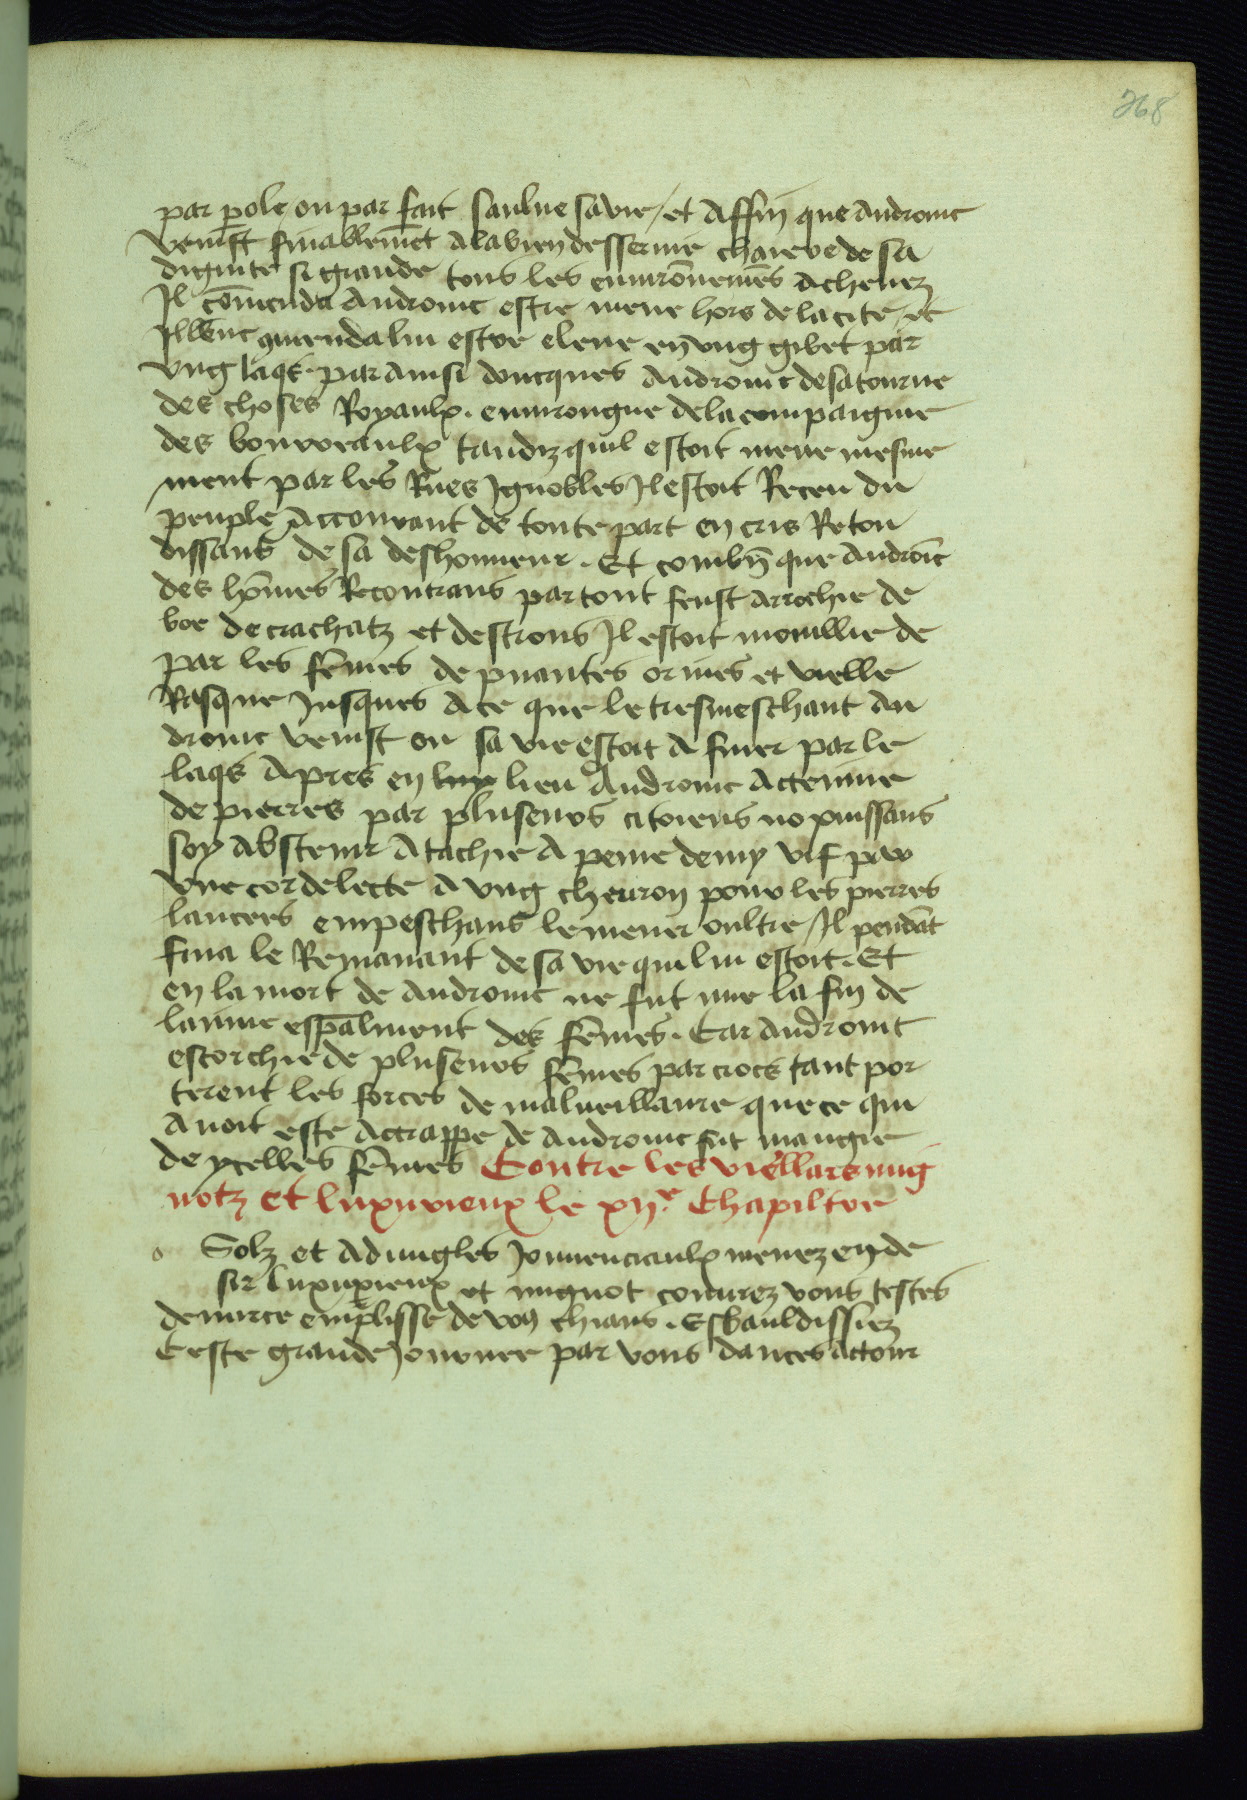 268
par ꝑole ou par fait saulue sa vie / et affin que andronic
venist finablemēt a la bien desseruie chaiere de sa
dignite si grande tous les enuirōnemēs acheuez
Il cōmenda andronic estre mene hors de la cite / et
illecīt ꝯmenda lui estre eleue en vng gibet par
vng laqs. par ainsi doncques andronic desatourne
des choses Royaulx. enuirongne de la compaignie
des bourreaulx tandiz quil estoit mene mesme
ment par les Rues Ignobles Il estoit Receu du
peuple accourant de toute part en cris Reton
dissans de sa deshonneur. Et combn̄ que androīc
des hōmes Recontrans par tout feust arrochie de
boe de crachatz et destrons Il estoit mouillie de
par les fēmes de puantes orines et vielle
Rasque Jusques a ce que le tresmeschant an
dronic venist ou sa vie estoit a finer par le
laqs apres en lieu andronic actenime
de pierres par pluseurs citoiens no puissans
soy abstenir atachie a peine demy vif par
vne cordelecte a vng cheuron pour les pierres
lancees empeschans le mener oultre / Il pendāt
fina le Remanant de sa vie qui lui estoit. Et
en la mort de andronic ne fut mie la fin de
lanime espālment des fēmes. Car andronic
escorchie de pluseurs fēmes par crocs tant por
terent les forces de malueillance que ce qui
auoit este actrappe de andronic fut mangie
de ycelles fēmes Contre les viellars mig
notz et luxurieux le xij.e Chapiltre
o Solz et adiungles Jouuenciaulx menez en de
sir luxurieux et mignot couurez vous testes
de mirre emplisse de voz chians. Esbauldissiez
Ceste grande Journee par vous dances actour